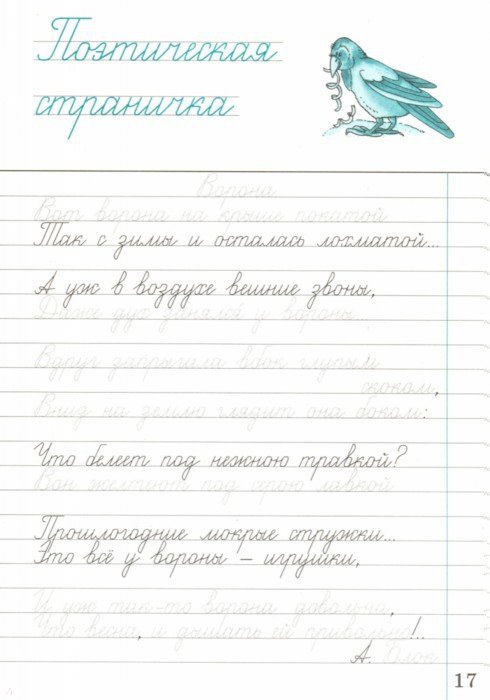 Поэтическая
страничка
Ворона
Вот ворона на крыше покатой
Так с зимы и осталась лохматой...
А уж в воздухе вешние звоны,
Даже дух занялся у вороны
Вдруг запрыгала вбок глупым
скоком,
Вниз на землю глядит она боком:
Что белеет под нежною травкой?
Вон желтеют под серою лавкой
Прошлогодние мокрые стружки...
Это всё у вороны – игрушки,
И уж так-то ворона довольна,
Что весна, и дышать ей привольно!..
А. Блок
17